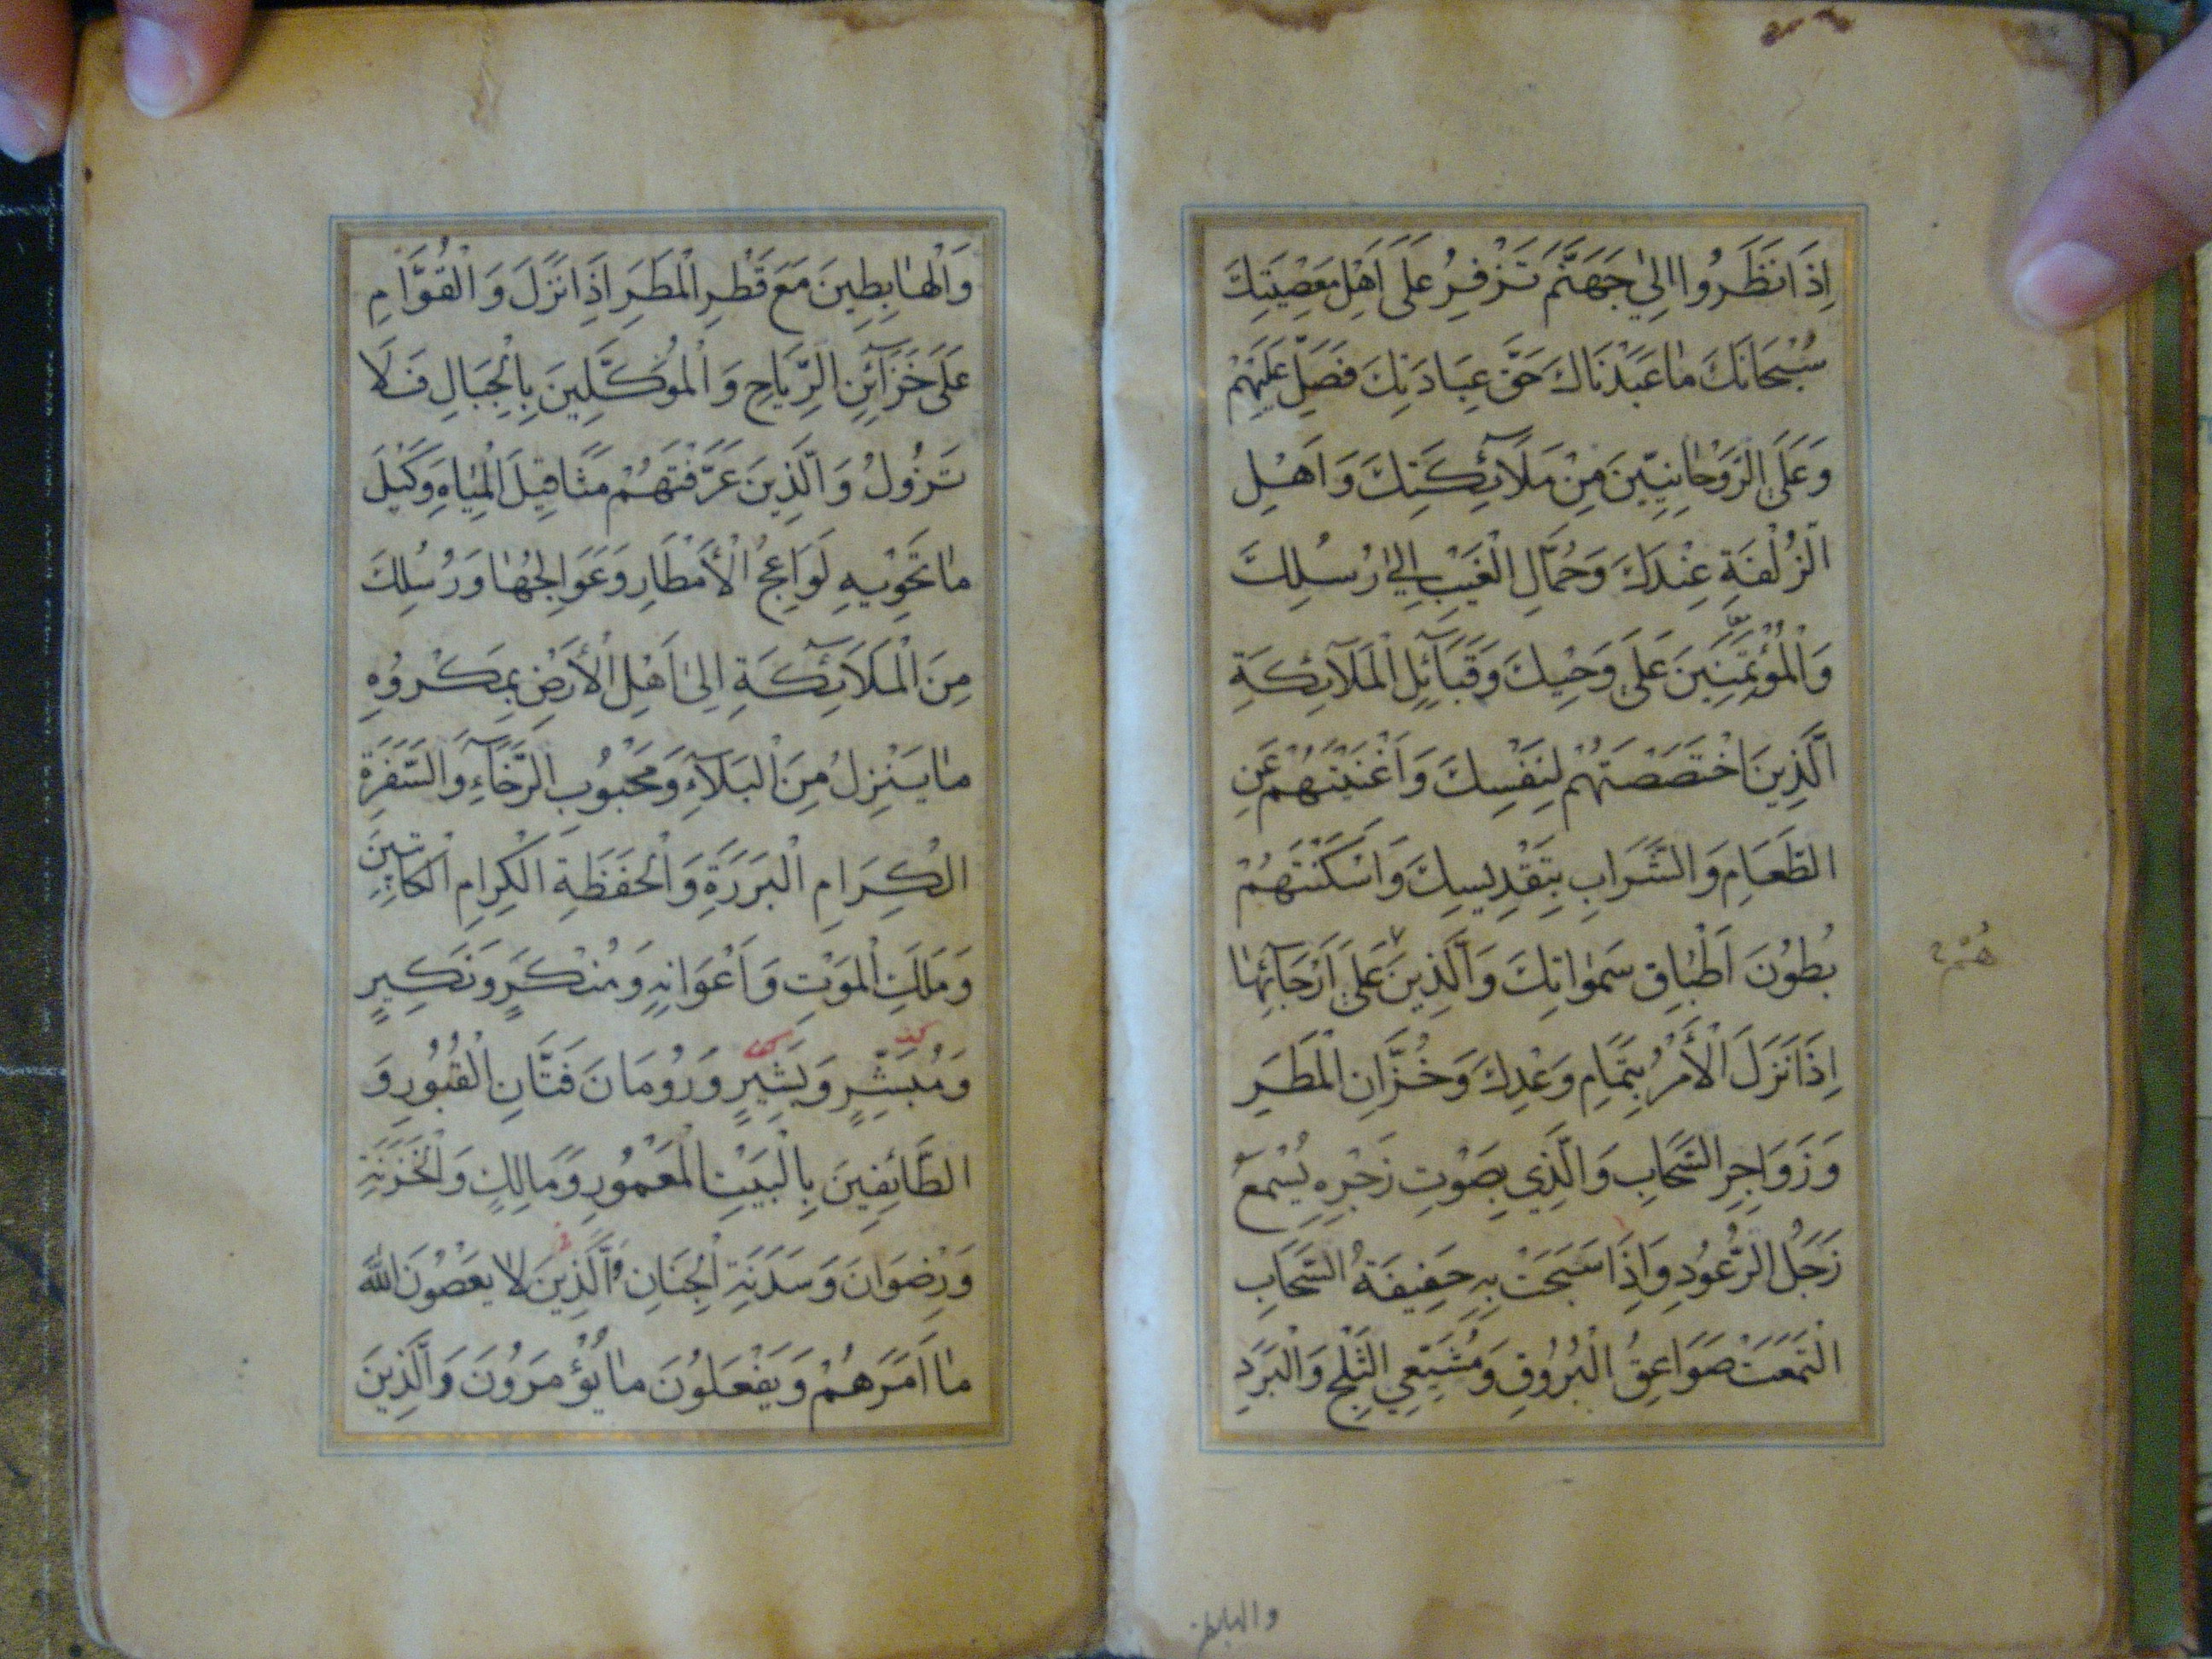 اِذَا نَظَرُوا اِلىٰ جَهَنَّمَ تَزْفِرُ عَلىٰ اَهْلِ مَعْصِيَتِكَ
سُبْحَانَكَ مٰا عَبَدْنَاكَ حَقَّ عِبَادَتِكَ فَصَلِّ عَلَيْهِمْ
وَعَلَى الرَّوْحٰانِيّينَ مِنْ مَلَآئِكَتِكَ وَاَهْلِ
الزُّلْفَةِ عِنْدَكَ وَحُمَّالِ الْغَيْبِ اِلىٰ رُسُلِكَ
وَالْمُؤْتَمَنِينَ عَلىٰ وَحْيِكَ وَقَبَآئِلِ الْمَلَآئِكَةِ
الَّذِينَ اخْتَصَصْتَهُمْ لِنَفْسِكَ وَاَغْنَيْتَهُمْ عَنِ
الطَّعَامِ وَالشَّرَابِ بِتَقْدِيسِكَ وَاَسْكَنْتَهُمْ
بُطُونَ اَطْبٰاقِ سَمٰوٰاتِكَ وَالَّذِينَ عَلىٰ اَرْجَآئِهٰا
هُمْ
اِذَا نَزَلَ الْأَمْرُ بِتَمَامِ وَعْدِكَ وَخُزَّانِ الْمَطَرِ
وَزَوَاجِرِ السَّحَابِ وَالَّذِي بِصَوْتِ زَجْرِهِ يُسْمَعُ
زَجَلُ الرُّعُودِ وَاِذَا سَبَحَتْ بِهِ حَفِيفَةُ السَّحَابِ
الْتَمَعَتْ صَوَاعِقُ الْبُرُوقِ وَمُشَيِّعِي الثَّلْجِ وَالْبَرَدِ
وَالْهٰابِطِينَ مَعَ قَطْرِ الْمَطَرِ اِذَا نَزَلَ وَالْقُوَّامِ
عَلىٰ خَزَآئِنِ الرِّيَاحِ وَالْمُوَكَّلِينَ بِالْجِبَالِ فَلَا
تَزُولُ وَالَّذِينَ عَرَّفْتَهُمْ مَثَاقِيلَ الْمِيٰاهِ وَكَيْلَ
مٰا تَحْوِيهِ لَوَاعِجُ الْأَمْطَارِ وَعَوَالِجُهٰا وَرُسُلِكَ
مِنَ الْمَلَآئِكَةِ اِلىٰ اَهْلِ الْأَرْضِ بِمَكْرُوهِ
مٰا يَنْزِلُ مِنَ الْبَلَآءِ وَمَحْبُوبِ الرَّخَآءِ وَالسَّفَرَةِ
الْكِرَامِ الْبَرَرَةِ وَالْحَفَظَةِ الْكِرٰامِ الْكَاتِبِينَ
وَمَلَكِ الْمَوْتِ وَاَعْوَانِهِ وَمُنْكَرٍ وَنَكِيرٍ
وَمُبَشِّرٍ وَبَشِيرٍ وَرُومَانَ فَتَّانِ الْقُبُورِ وَ
الطَّائِفِينَ بِالْبَيْتِ الْمَعْمُورِ وَمَالِكٍ وَالْخَزَنَةِ
وَرِضْوَانَ وَسَدَنَةِ الْجِنَانِ وَالَّذِينَ لَا يَعْصُونَ اللّٰهَ
مٰا اَمَرَهُمْ وَيَفْعَلُونَ مٰا يُؤْمَرُونَ وَالَّذِينَ